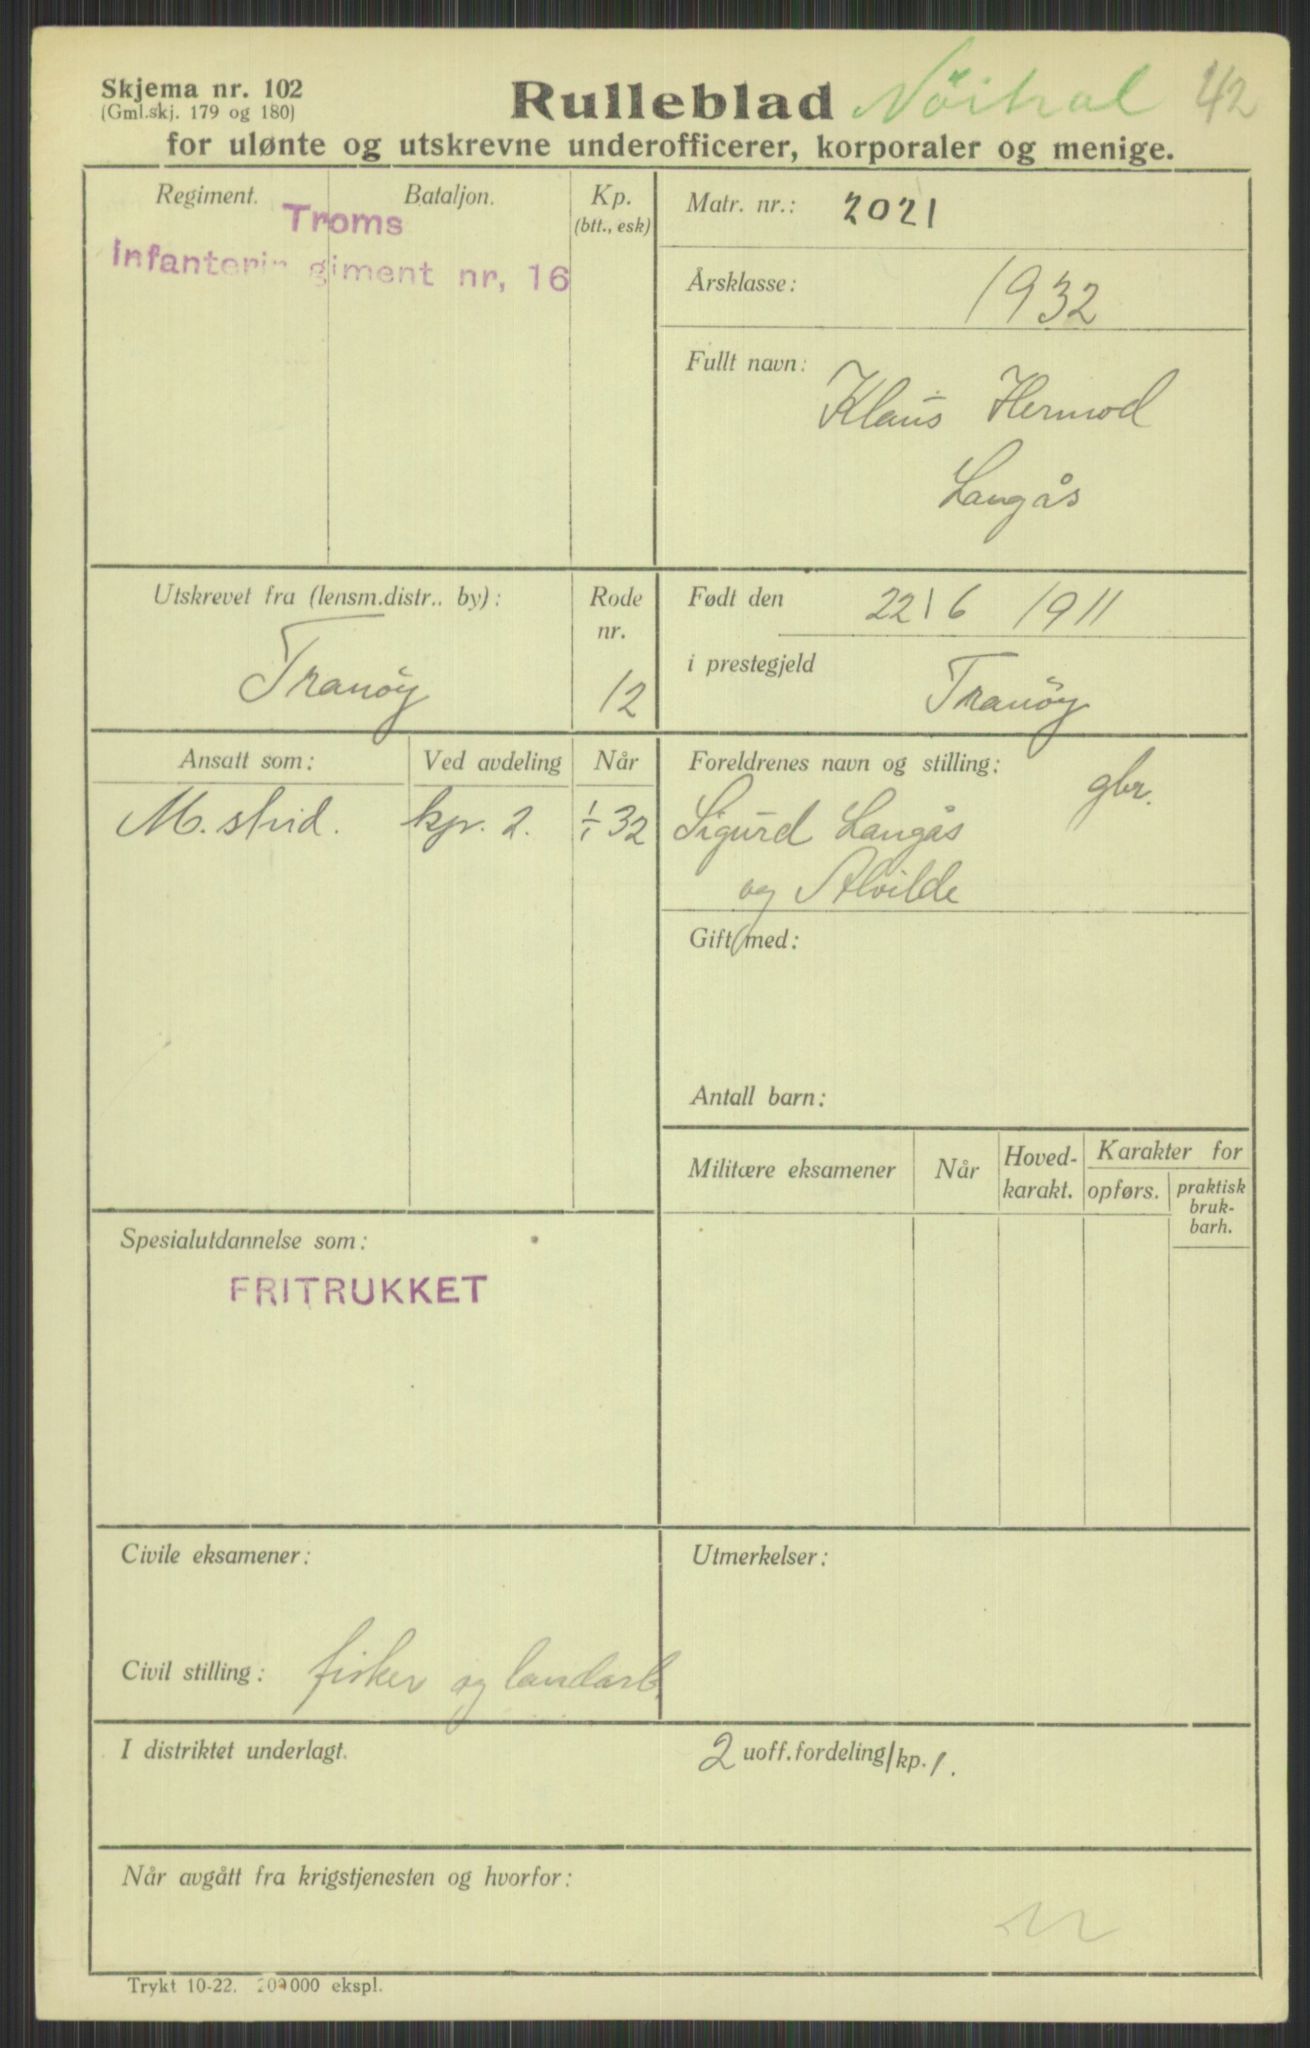 Skjema nr. 102
(Gml.skj. 179 og 180)
Rulleblad
Nöitral 42
for ulønte og utskrevne underofficerer, korporaler og menige.
Regiment. Bataljon. Kp.
(btt., esk)
Troms
Infanteri giment nr, 16
Matr. nr.: 2021
Årsklasse: 1932
Fullt navn:
Klaus Hermod
Langås
Utskrevet fra (lensm.distr.. by):
Tranöy
Rode
nr.
12
Født den 22/6 1911
i prestegjeld Tranöy
Ansatt som: Ved avdeling Når
M. strid. kp. 2. 1/1 32
Foreldrenes navn og stilling: gbr.
Sigurd Langås
og Alvilde
Gift med:
Antall barn:
Militære eksamener Når Hoved-
karakt. Karakter for
opførs. praktisk
bruk-
barh.
Spesialutdannelse som:
FRITRUKKET
Civile eksamener:
Utmerkelser:
Civil stilling: fisker og landarb.
I distriktet underlagt. 2 uoff.fordeling/kp. 1.
Når avgått fra krigstjenesten og hvorfor:
Trykt 10-22. 200000 ekspl.